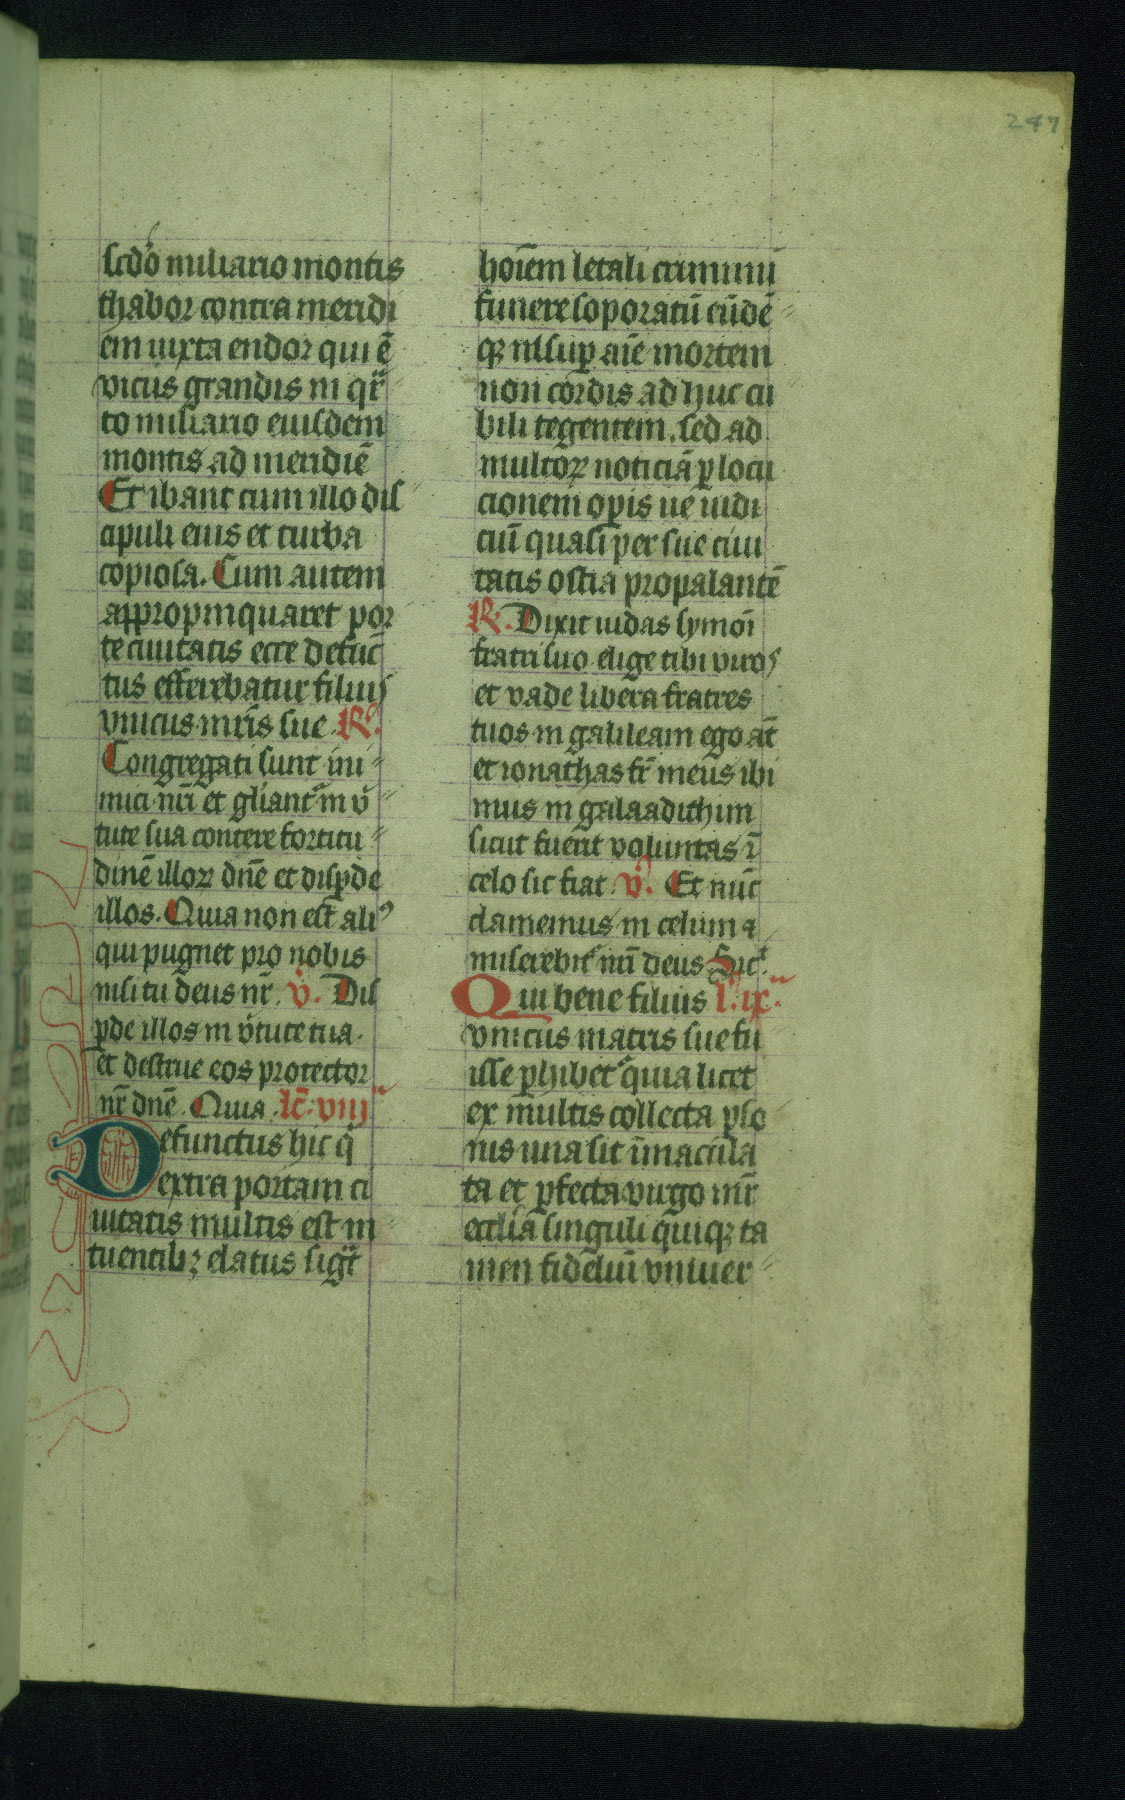 247
scd̄o miliario montis
thabor contra meridi
em iuxta endor qui ē
vicus grandis in qr̄
to miliario eiusdem
montis ad meridiē
Et ibant cum illo dis
cipuli eius et turba
copiosa. Cum autem
appropinquaret por
te ciuitatis ecce defūc
tus efferebatur filius
vnicus mr̄is sue. R̄.
Congregati sunt ini
mici nr̄i et gl̄iant᷑ in v̄
tute sua contere fortitu
dinē illoꝝ dn̄e et disꝑde
illos. Quia non est aliꝰ
qui pugnet pro nobis
nisi tu deus nr̄. v̄. Dis
ꝑde illos in v̄tute tua.
et destrue eos protector
nr̄ dn̄e. Quia. lc̄. viij
Defunctus hic q̄
extra portam ci
uitatis multis est in
tuentibꝫ elatus sigt̄
hoīem letali criminū
funere soporatū eūdē
qꝫ insuꝑ aīe mortem
non cordis ad huc cu
bili tegentem. sed ad
multoꝝ noticiā ꝑ locu
cionem oꝑis ue iudi
ciū quasi per sue ciui
tatis ostia propalantē
R̄. Dixit iudas symoī
fratri suo elige tibi viros
et vade libera fratres
tuos in galileam ego at̄
et ionathas fr̄ meus ibi
mus in galaadithim
sicut fuerit voluntas ī
celo sic fiat. v̄. Et nūc
clamemus in celum ⁊
miserebit᷑ nr̄i deus. Sic᷑
Qui bene filius l̄. ix.
vnicus matris sue fu
isse ꝓhibet᷑ quia licet
ex multis collecta ꝑso
nis una sit īmacula
ta et ꝑfecta virgo mr̄
eccl̄ia singuli quiqꝫ ta
men fideliū vniuer